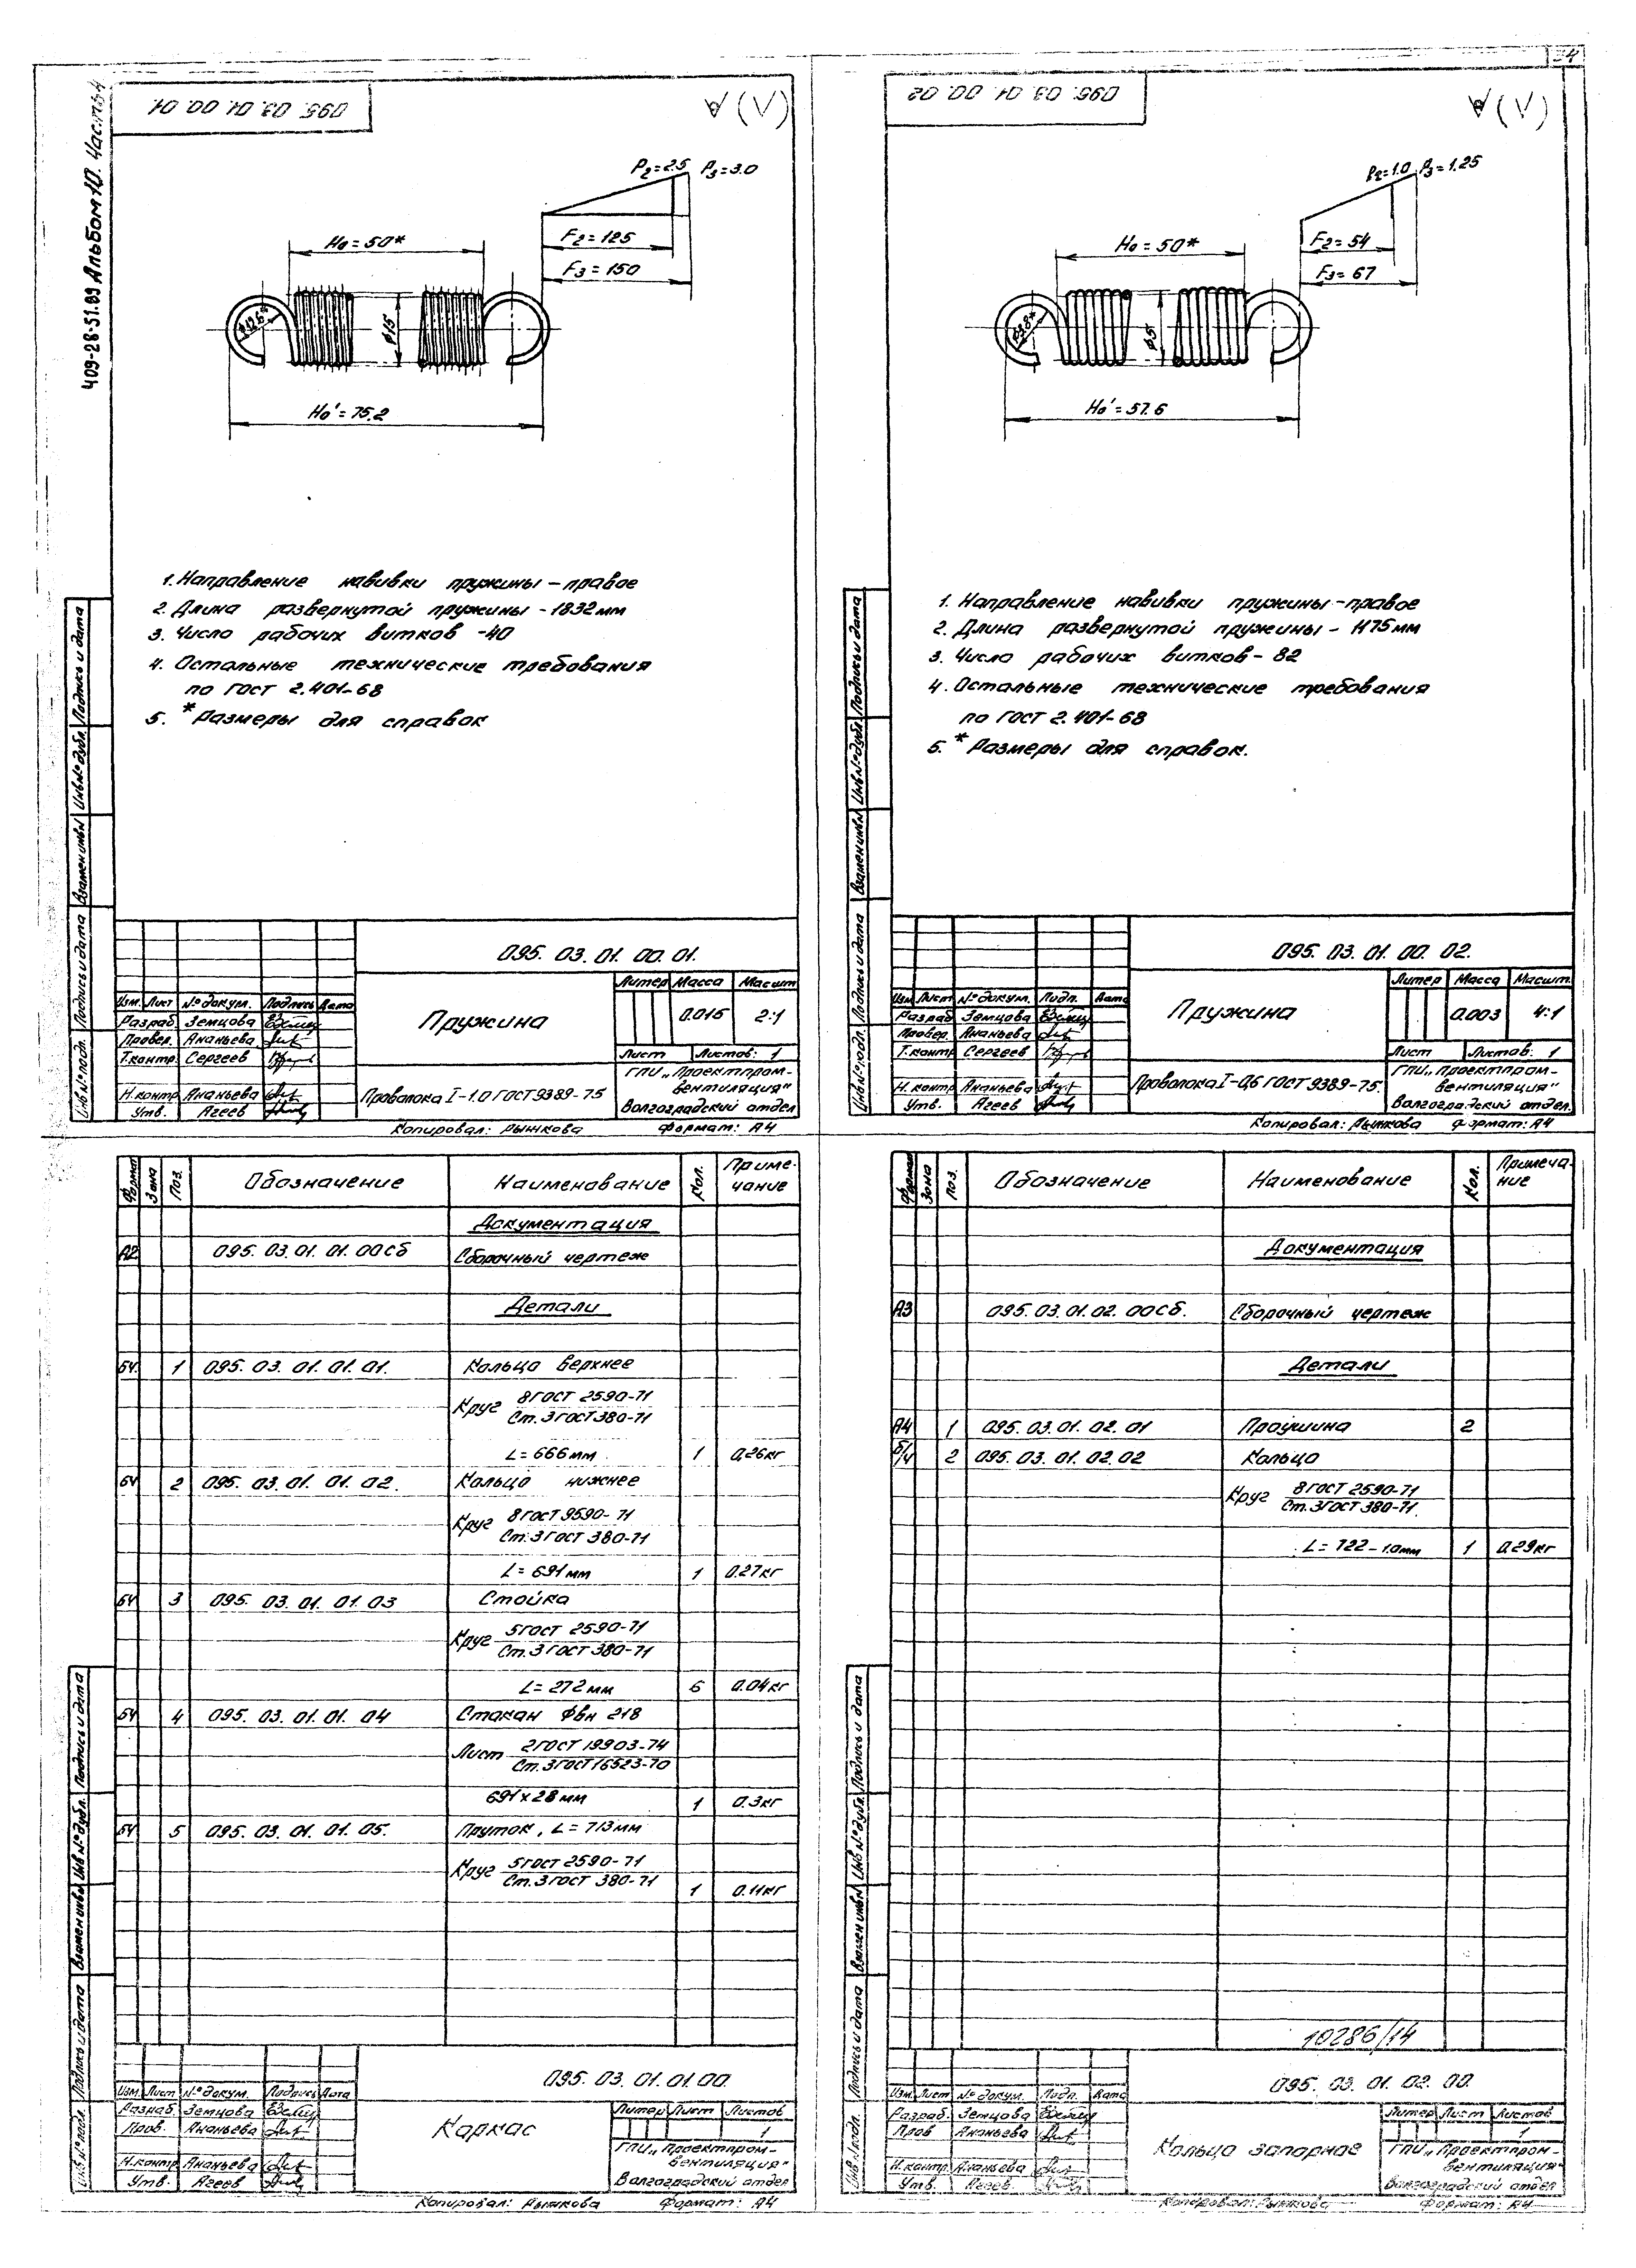 4
409-28-51.89 Альбом 10. Часть 4
095. 03. 01. 00. 01
(√)
P₂=2.5 P₃=3.0
H₀=50*
F₂=125
F₃=150
ø12.6*
ø15
H₀'=75.2
1. Направление навивки пружины - правое
2. Длина развернутой пружины - 1832мм
3. Число рабочих витков -40
4. Остальные технические требования
по ГОСТ 2.401-68
5. *Размеры для справок
095. 03. 01. 00. 01.
Литер Масса Масшт.
Изм. Лист №докум. Подпись Дата
Пружина
0.015 2:1
Разраб. Земцова
Провер. Ананьева
Т.контр. Сергеев
Лист Листов: 1
Н.контр. Ананьева
Утв. Агеев
Проволока I-1.0 ГОСТ 9389-75
ГПИ „Проектпром-
вентиляция"
Волгоградский отдел
Копировал: Рыжкова Формат: А4
Подпись и дата
Инв№дубл.
Взамен инв№
Подпись и дата
Инв№подл.
095. 03. 01. 00. 02
(√)
P₂=1.0 P₃=1.25
H₀=50*
F₂=54
F₃=67
ø3.8*
ø5
H₀'=57.6
1. Направление навивки пружины - правое
2. Длина развернутой пружины - 1175мм
3. Число рабочих витков - 82
4. Остальные технические требования
по ГОСТ 2.401-68
5. *Размеры для справок.
095. 03. 01. 00. 02.
Литер Масса Масшт.
Изм Лист №докум. Подп. Дата
Пружина
0.003 4:1
Разраб Земцова
Провер. Ананьева
Т.контр. Сергеев
Лист Листов: 1
Н.контр. Ананьева
Утв. Агеев
Проволока I-0,6 ГОСТ 9389-75.
ГПИ „Проектпром-
вентиляция"
Волгоградский отдел.
Копировал: Рыжкова Формат: А4
Подпись и дата
Инв№дубл.
Взамен инв№
Подпись и дата
Инв№подл.
Формат Зона Поз. Обозначение Наименование Кол. Приме-
чание
Документация
А2 095. 03. 01. 01. 00 Сб Сборочный чертеж
Детали
БЧ. 1 095. 03. 01. 01. 01. Кольцо верхнее
Круг 8 ГОСТ 2590-71
Ст. 3 ГОСТ 380-71
L= 666 мм 1 0,26кг
БЧ 2 095. 03. 01. 01. 02. Кольцо нижнее
Круг 8 ГОСТ 9590-71
Ст. 3 ГОСТ 380-71
L= 691 мм 1 0.27кг
БЧ 3 095. 03. 01. 01. 03 Стойка
Круг 5 ГОСТ 2590-71
Ст. 3 ГОСТ 380-71
L= 272 мм 6 0.04кг
БЧ 4 095. 03. 01. 01. 04 Стакан Фвн 218
Лист 2 ГОСТ 19903-74
Ст. 3 ГОСТ 16523-70
691×28 мм 1 0.3кг
БЧ 5 095. 03. 01. 01. 05. Пруток, L= 713мм
Круг 5 ГОСТ 2590-71
Ст. 3 ГОСТ 380-71
1 0.11кг
095. 03. 01. 01. 00.
Изм. Лист №докум. Подпись Дата
Разраб. Земцова
Пров. Ананьева
Каркас
Литер Лист Листов
1
Н.контр. Ананьева
Утв. Агеев
ГПИ „Проектпром-
вентиляция"
Волгоградский отдел
Копировал: Рыжкова Формат: А4
Подпись и дата
Инв №дубл.
Взамен инв№
Подпись и дата
Инв №подл.
Формат Зона Поз. Обозначение Наименование Кол. Примеча-
ние
Документация
А3 095. 03. 01. 02. 00 Сб. Сборочный чертеж
Детали
А4 1 095. 03. 01. 02. 01 Проушина 2
Б/Ч 2 095. 03. 01. 02. 02 Кольцо
Круг 8 ГОСТ 2590-71
Ст. 3 ГОСТ 380-71.
L= 722-1.0мм 1 0.29кг
10286/14
095. 03. 01. 02. 00.
Изм. Лист №докум. Подп. Дата
Разраб. Земцова
Пров Ананьева
Кольцо запорное
Литер Лист Листов
1
Н.контр. Ананьева
Утв. Агеев.
ГПИ „Проектпром-
вентиляция"
Волгоградский отдел
Копировал: Рыжкова Формат: А4
Подпись и дата
Инв №дубл.
Взамен инв№
Подпись и дата
Инв №подл.